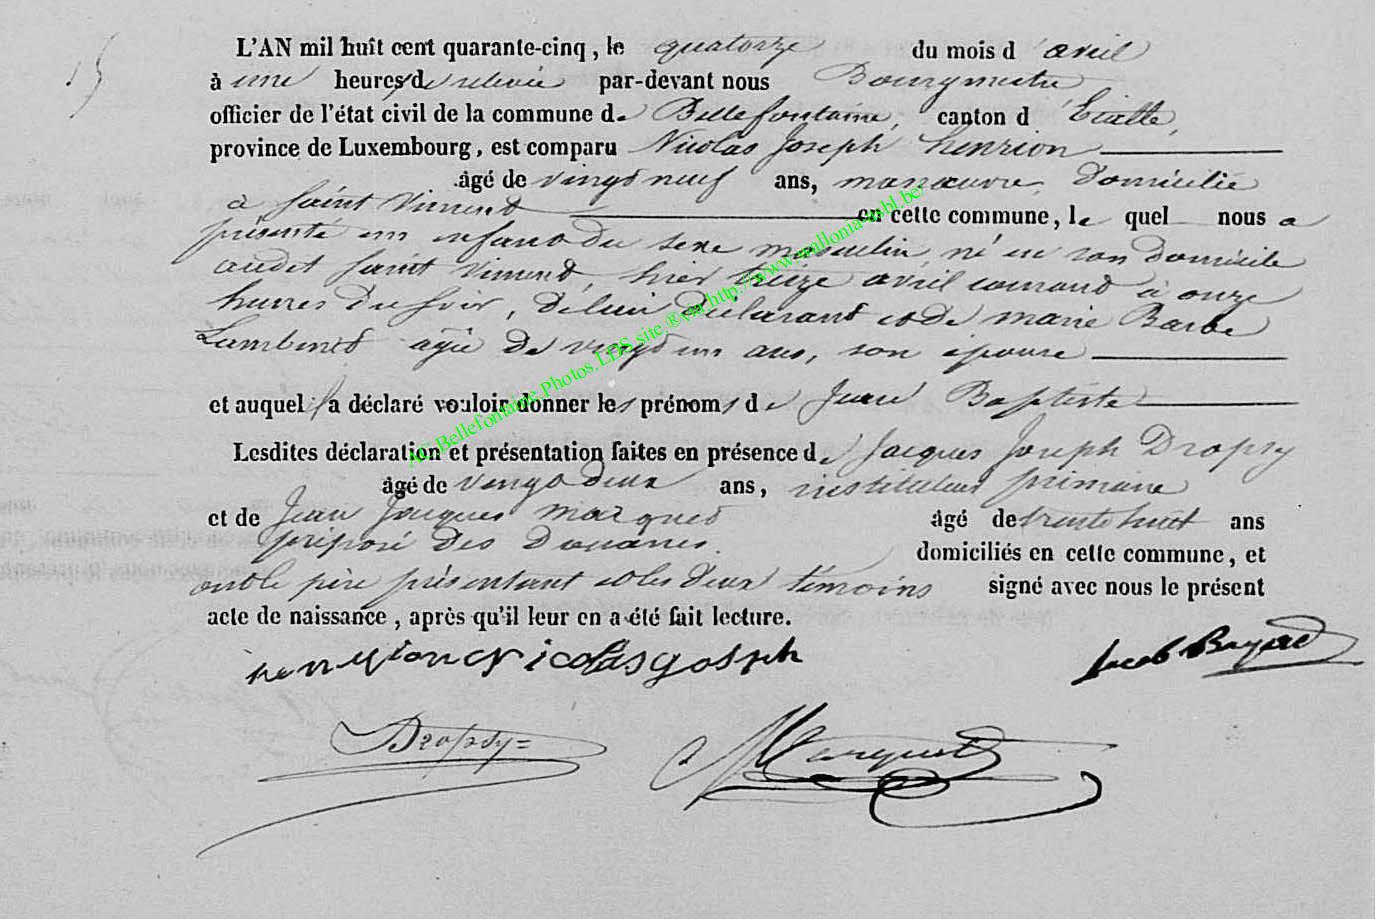 15
L'AN mil huit cent quarante-cinq, le quatorze du mois d'avril
à une heures de relevée par-devant nous Bourgmestre
officier de l'état civil de la commune de Bellefontaine, canton d'Etalle,
province de Luxembourg, est comparu Nicolas Joseph henrion
âgé de vingt neuf ans, manœuvre, domicilié
à Saint Vincent en cette commune, le quel nous a
présenté un enfant du sexe masculin, né en son domicile
audit Saint Vincent, hier treize avril courant à onze
heures du soir, de lui déclarant et de marie Barbe
Lambinet agée de vingt un ans, son épouse
et auquel il a déclaré vouloir donner les prénoms de Jean Baptiste
Lesdites déclaration et présentation faites en présence de Jacques Joseph Dropsy
âgé de vingt deux ans, instituteur primaire
et de Jean Jacques marquet âgé de trente huit ans
préposé des Douanes. domiciliés en cette commune, et
ont le père présentant et les deux témoins signé avec nous le présent
acte de naissance, après qu'il leur en a été fait lecture.
Jacob Bayard
Dropsy
Marquet
AC.Bellefontaine.Photos.LBS site ®via http://www.wallonia-asbl.be/